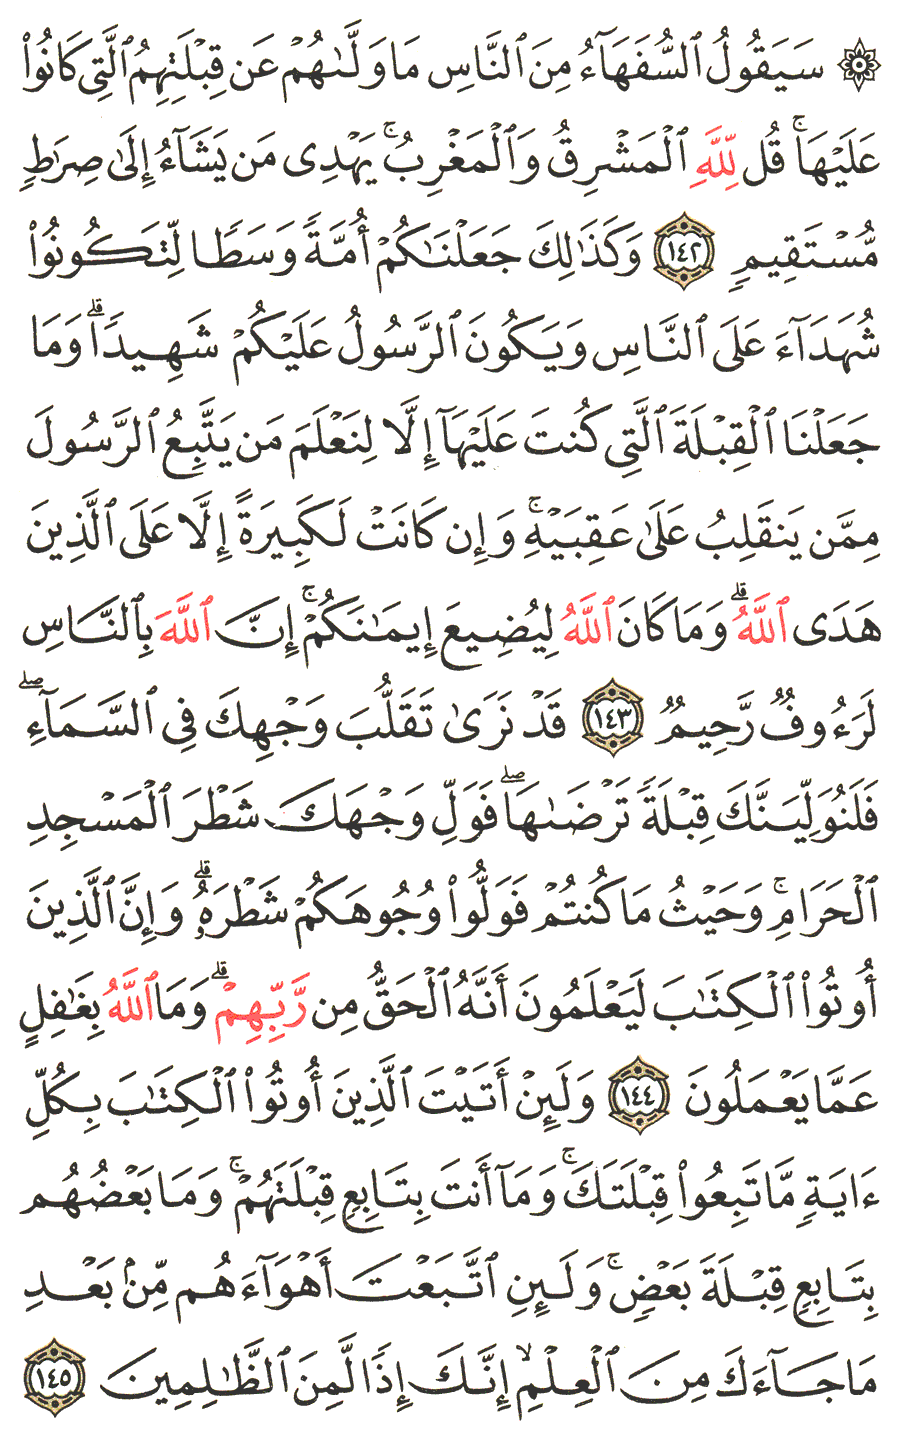 ۞ سَيَقُولُ ٱلسُّفَهَآءُ مِنَ ٱلنَّاسِ مَا وَلَّىٰهُمْ عَن قِبْلَتِهِمُ ٱلَّتِى كَانُوا۟
عَلَيْهَا ۚ قُل لِّلَّهِ ٱلْمَشْرِقُ وَٱلْمَغْرِبُ ۚ يَهْدِى مَن يَشَآءُ إِلَىٰ صِرَٰطٍ
مُّسْتَقِيمٍ ١٤٢ وَكَذَٰلِكَ جَعَلْنَٰكُمْ أُمَّةً وَسَطًا لِّتَكُونُوا۟
شُهَدَآءَ عَلَى ٱلنَّاسِ وَيَكُونَ ٱلرَّسُولُ عَلَيْكُمْ شَهِيدًا ۗ وَمَا
جَعَلْنَا ٱلْقِبْلَةَ ٱلَّتِى كُنتَ عَلَيْهَآ إِلَّا لِنَعْلَمَ مَن يَتَّبِعُ ٱلرَّسُولَ
مِمَّن يَنقَلِبُ عَلَىٰ عَقِبَيْهِ ۚ وَإِن كَانَتْ لَكَبِيرَةً إِلَّا عَلَى ٱلَّذِينَ
هَدَى ٱللَّهُ ۗ وَمَا كَانَ ٱللَّهُ لِيُضِيعَ إِيمَٰنَكُمْ ۚ إِنَّ ٱللَّهَ بِٱلنَّاسِ
لَرَءُوفٌ رَّحِيمٌ ١٤٣ قَدْ نَرَىٰ تَقَلُّبَ وَجْهِكَ فِى ٱلسَّمَآءِ ۖ
فَلَنُوَلِّيَنَّكَ قِبْلَةً تَرْضَىٰهَا ۖ فَوَلِّ وَجْهَكَ شَطْرَ ٱلْمَسْجِدِ
ٱلْحَرَامِ ۚ وَحَيْثُ مَا كُنتُمْ فَوَلُّوا۟ وُجُوهَكُمْ شَطْرَهُۥ ۗ وَإِنَّ ٱلَّذِينَ
أُوتُوا۟ ٱلْكِتَٰبَ لَيَعْلَمُونَ أَنَّهُ ٱلْحَقُّ مِن رَّبِّهِمْ ۗ وَمَا ٱللَّهُ بِغَٰفِلٍ
عَمَّا يَعْمَلُونَ ١٤٤ وَلَئِنْ أَتَيْتَ ٱلَّذِينَ أُوتُوا۟ ٱلْكِتَٰبَ بِكُلِّ
ءَايَةٍ مَّا تَبِعُوا۟ قِبْلَتَكَ ۚ وَمَآ أَنتَ بِتَابِعٍ قِبْلَتَهُمْ ۚ وَمَا بَعْضُهُم
بِتَابِعٍ قِبْلَةَ بَعْضٍ ۚ وَلَئِنِ ٱتَّبَعْتَ أَهْوَآءَهُم مِّنۢ بَعْدِ
مَا جَآءَكَ مِنَ ٱلْعِلْمِ ۙ إِنَّكَ إِذًا لَّمِنَ ٱلظَّٰلِمِينَ ١٤٥